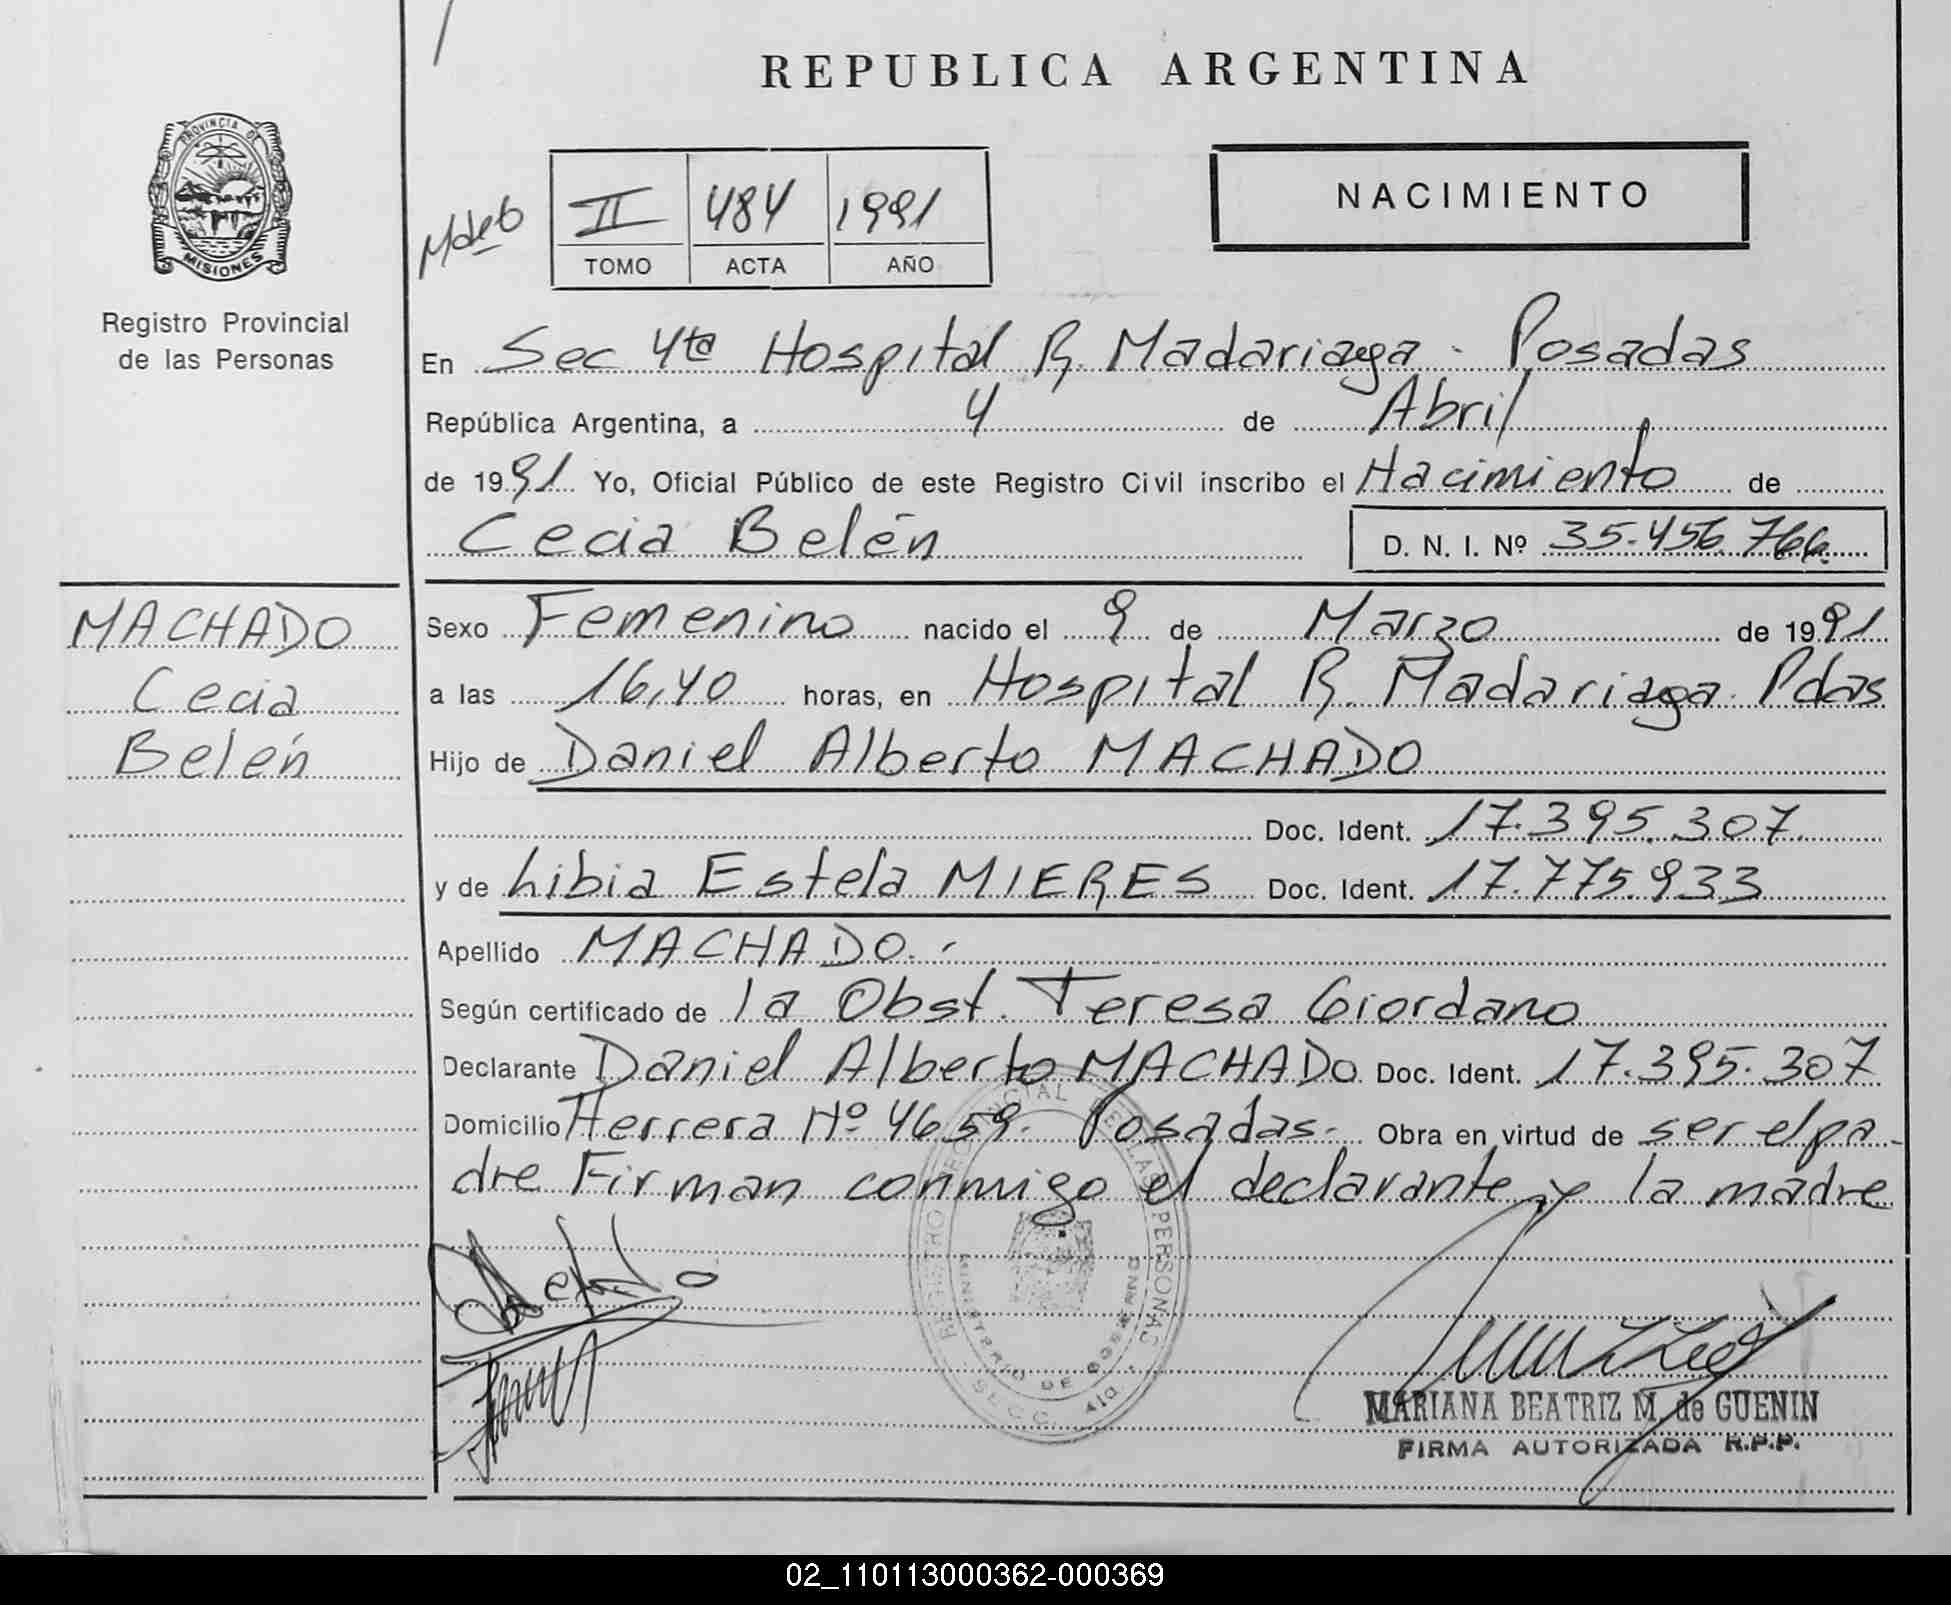 REPUBLICA ARGENTINA
PROVINCIA DE
MISIONES
Registro Provincial
de las Personas
II 484 1991
TOMO ACTA AÑO
NACIMIENTO
En Sec 4ta Hospital R. Madariaga - Posadas
República Argentina, a 4 de Abril
de 1991 Yo, Oficial Público de este Registro Civil inscribo el Nacimiento de
Cecia Belén D. N. I. Nº 35.456.766.
MACHADO
Cecia
Belén
Sexo Femenino nacido el 9 de Marzo de 1991
a las 16,40 horas, en Hospital R. Madariaga Pdas
Hijo de Daniel Alberto MACHADO
Doc. Ident. 17.395.307.
y de Libia Estela MIERES Doc. Ident. 17.775.933
Apellido MACHADO.-
Según certificado de la Obst. Teresa Giordano
Declarante Daniel Alberto MACHADO Doc. Ident. 17.395.307
Domicilio Herrera Nº 4659. Posadas.- Obra en virtud de ser el pa-
dre Firman conmigo el declarante y la madre
REGISTRO PROVINCIAL DE LAS PERSONAS
MINISTERIO DE GOBIERNO
MARIANA BEATRIZ M. de GUENIN
FIRMA AUTORIZADA R.P.P.
02_110113000362-000369